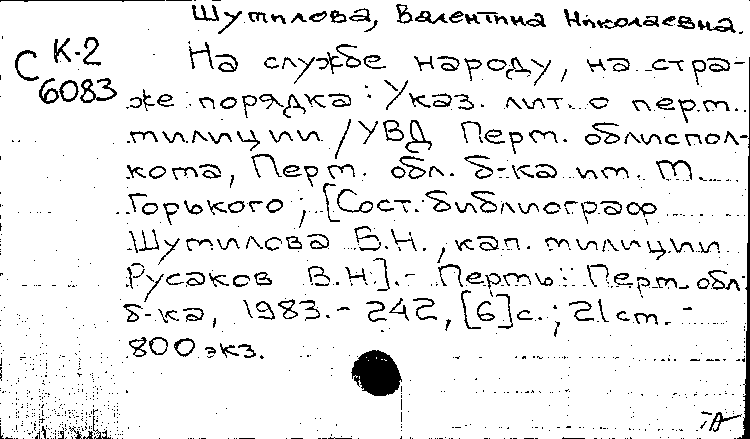 Шутилова, Валентина Николаевна.
С К-2
6083
На службе народу, на стра-
же порядка: Указ. лит. о перм.
милиции / УВД Перм. облиспол-
кома, Перм. обл. б-ка им. М.
Горького; [Сост. библиограф
Шутилова В.Н., кап. милиции
Русаков В.Н]. - Пермь: Перм. обл.
б-ка, 1983. - 242, [6] с.; 21 см. -
800 экз.